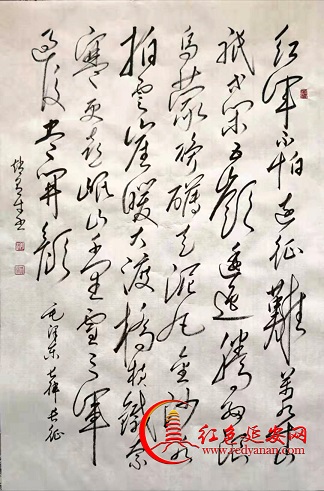 红军不怕远征難萬水千山
祇等闲五嶺逶迤腾细浪
烏蒙磅礴走泥丸金沙水
拍雲崖暖大渡橋横鐵索
寒更喜岷山千里雪三軍
過後尽開顏
毛泽东七律长征
红色延安网
www.redyanan.com